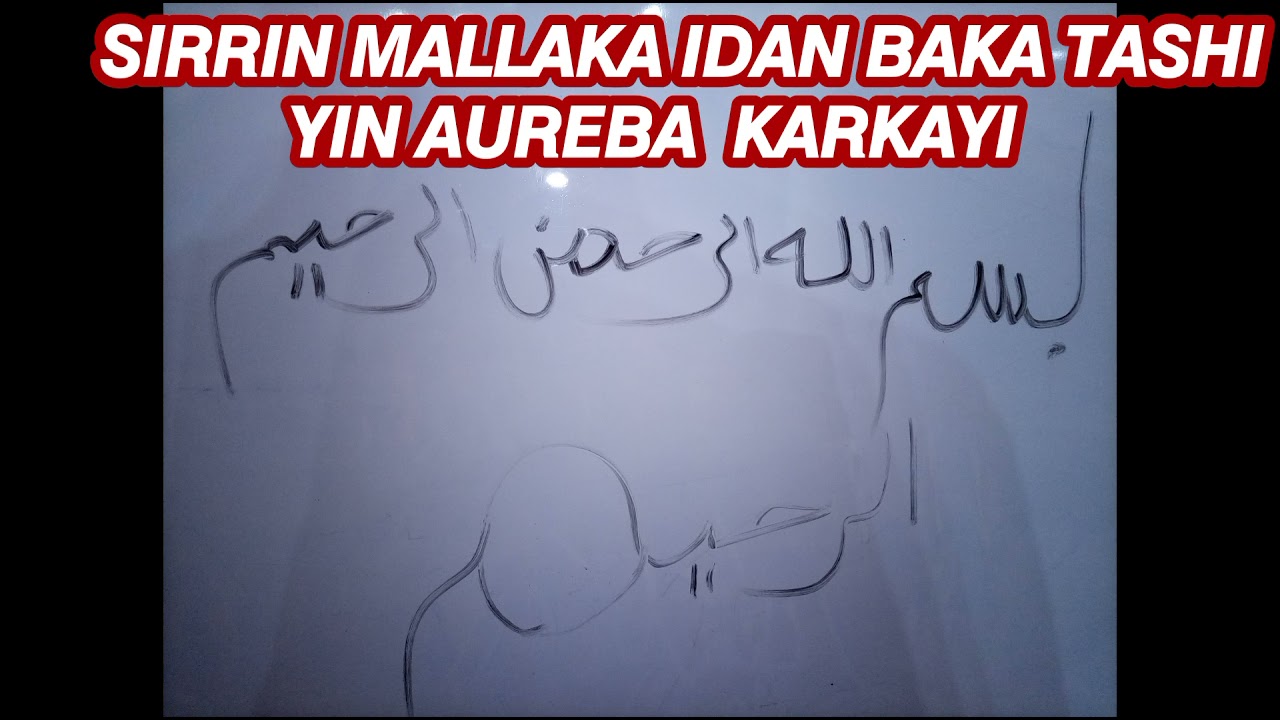 SIRRIN MALLAKA IDAN BAKA TASHI
YIN AUREBA KARKAYI
بسم الله الرحمن الرحيم
الرحيم